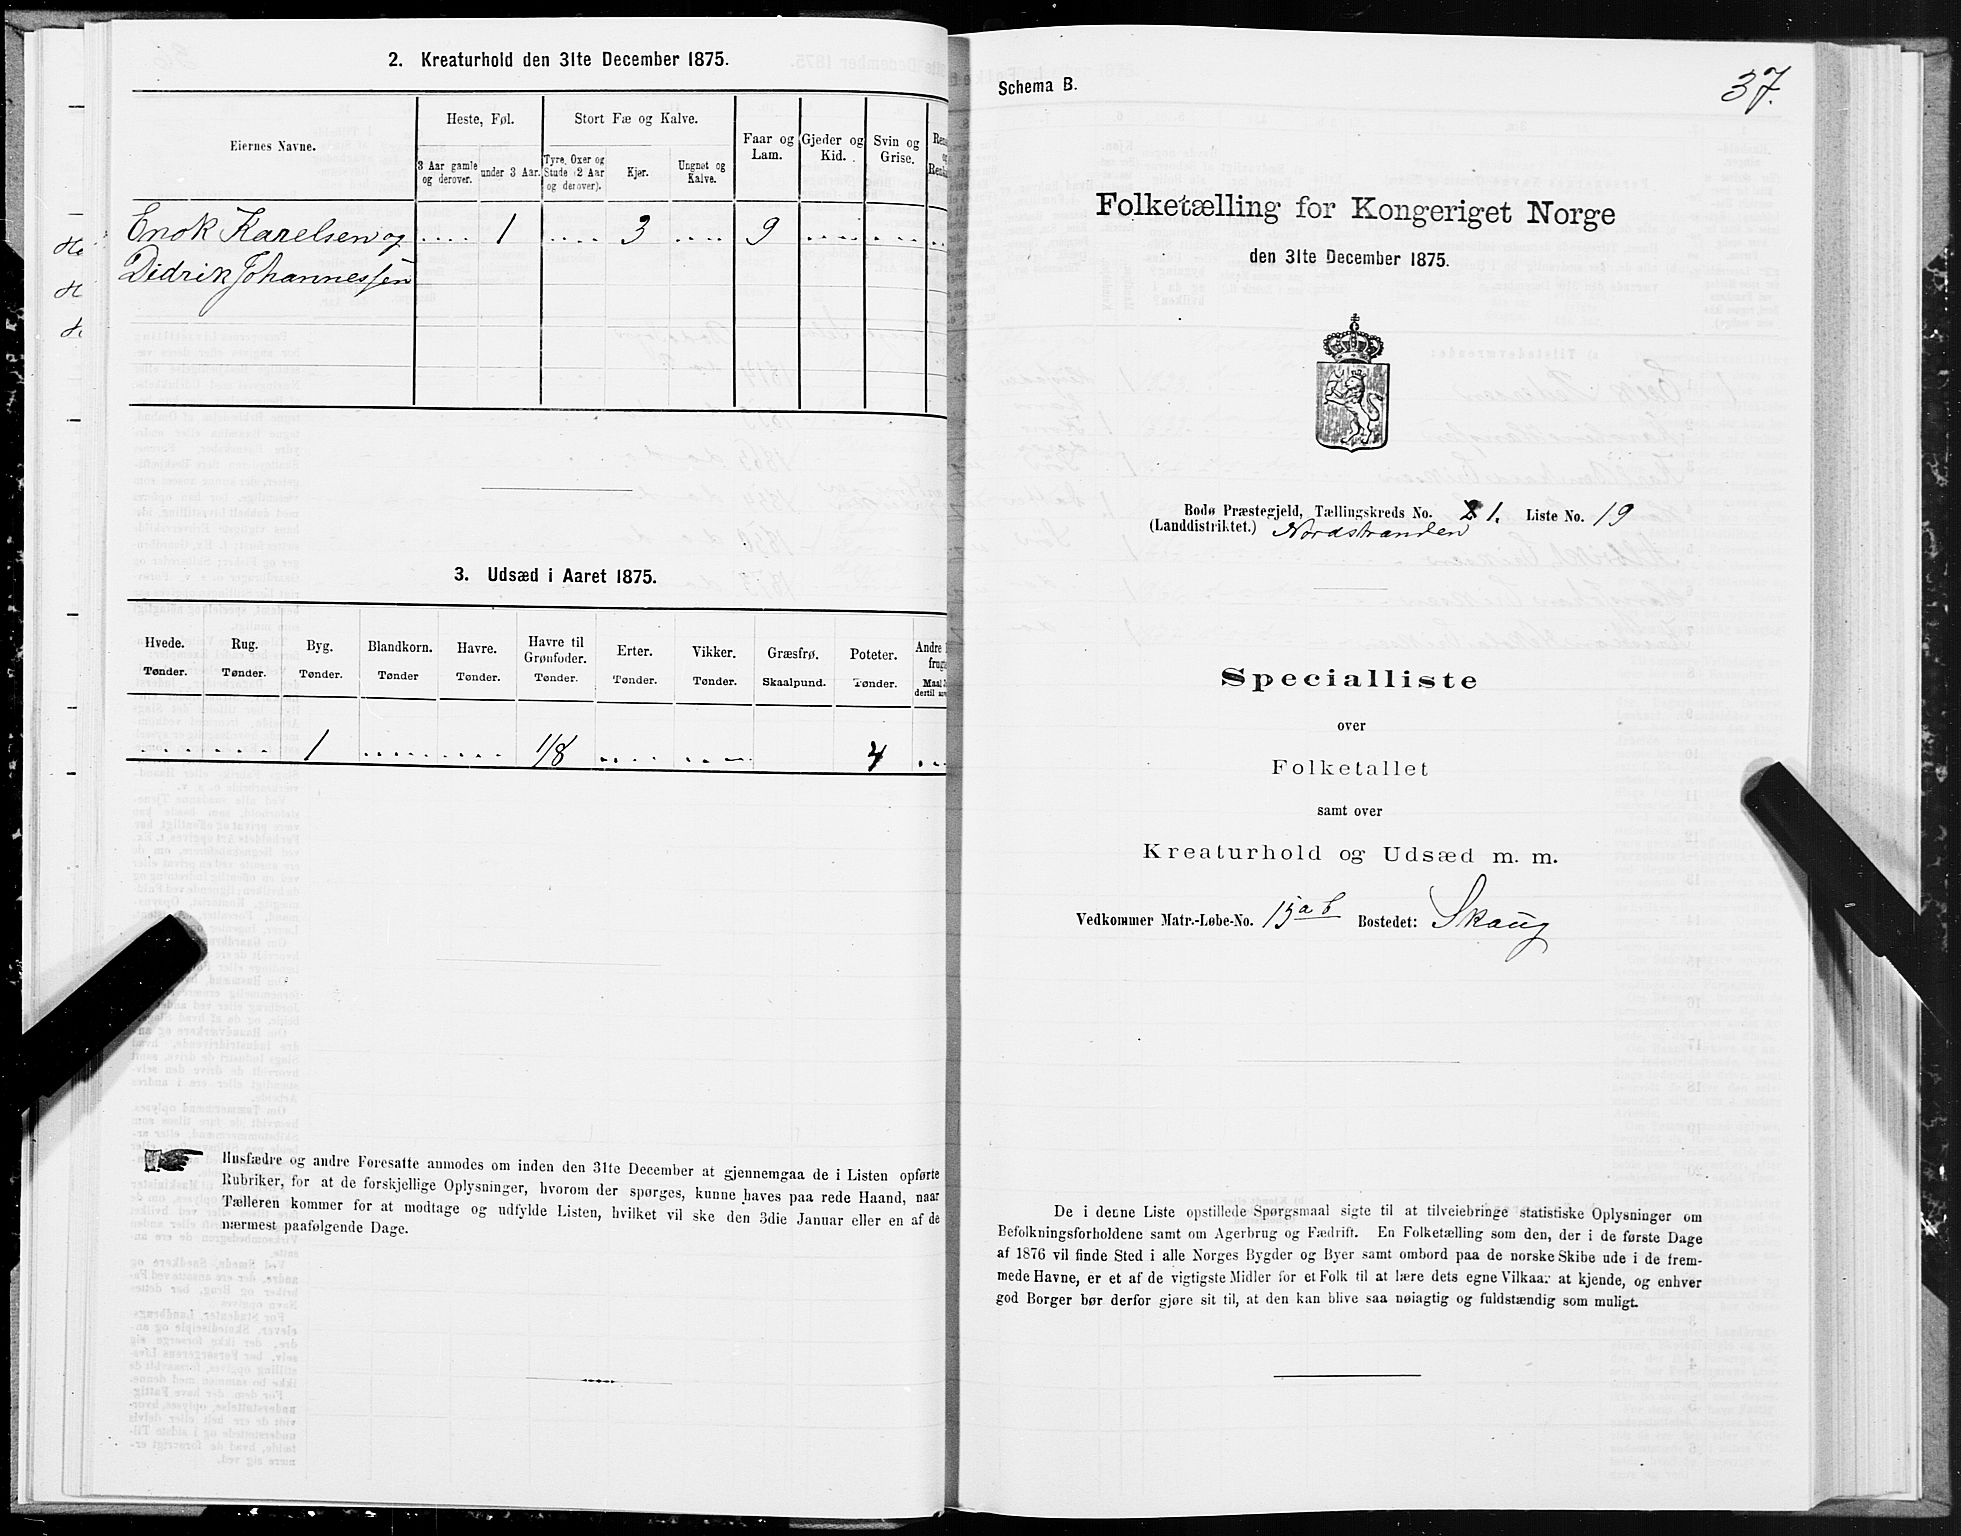 2. Kreaturhold den 31te December 1875.
Eiernes Navne.
Heste, Føl.
Stort Fæ og Kalve.
Faar og Lam.
Gjeder og Kid.
Svin og Grise.
3 Aar gamle og derover.
under 3 Aar.
Tyre, Oxer og Stude (2 Aar og derover).
Kjør.
Ungnøt og Kalve.
Enok Karelsen og .... 1 .... 3 .... 9 .... ....
Didrik Johannessen
3. Udsæd i Aaret 1875.
Hvede. Rug. Byg. Blandkorn. Havre. Havre til Grønfoder. Erter. Vikker. Græsfrø. Poteter. Andre
Tønder. Tønder. Tønder. Tønder Tønder. Tønder. Tønder. Tønder. Skaalpund. Tønder.
1 1/8 4
Husfædre og andre Foresatte anmodes om inden den 31te December at gjennemgaa de i Listen opførte
Rubriker, for at de forskjellige Oplysninger, hvorom der spørges, kunne haves paa rede Haand, naar
Tælleren kommer for at modtage og udfylde Listen, hvilket vil ske den 3die Januar eller en af de
nærmest paafølgende Dage.
Schema B.
37.
Folketælling for Kongeriget Norge
den 31te December 1875.
Bodø Præstegjeld, Tællingskreds No. 1. Liste No. 19
(Landdistriktet.) Nordstranden
Specialliste
over
Folketallet
samt over
Kreaturhold og Udsæd m. m.
Vedkommer Matr.-Løbe-No. 15 a b Bostedet: Skaug
De i denne Liste opstillede Spørgsmaal sigte til at tilveiebringe statistiske Oplysninger om
Befolkningsforholdene samt om Agerbrug og Fædrift. En Folketælling som den, der i de første Dage
af 1876 vil finde Sted i alle Norges Bygder og Byer samt ombord paa de norske Skibe ude i de frem-
mede Havne, er et af de vigtigste Midler for et Folk til at lære dets egne Vilkaar at kjende, og enhver
god Borger bør derfor gjøre sit til, at den kan blive saa nøiagtig og fuldstændig som muligt.